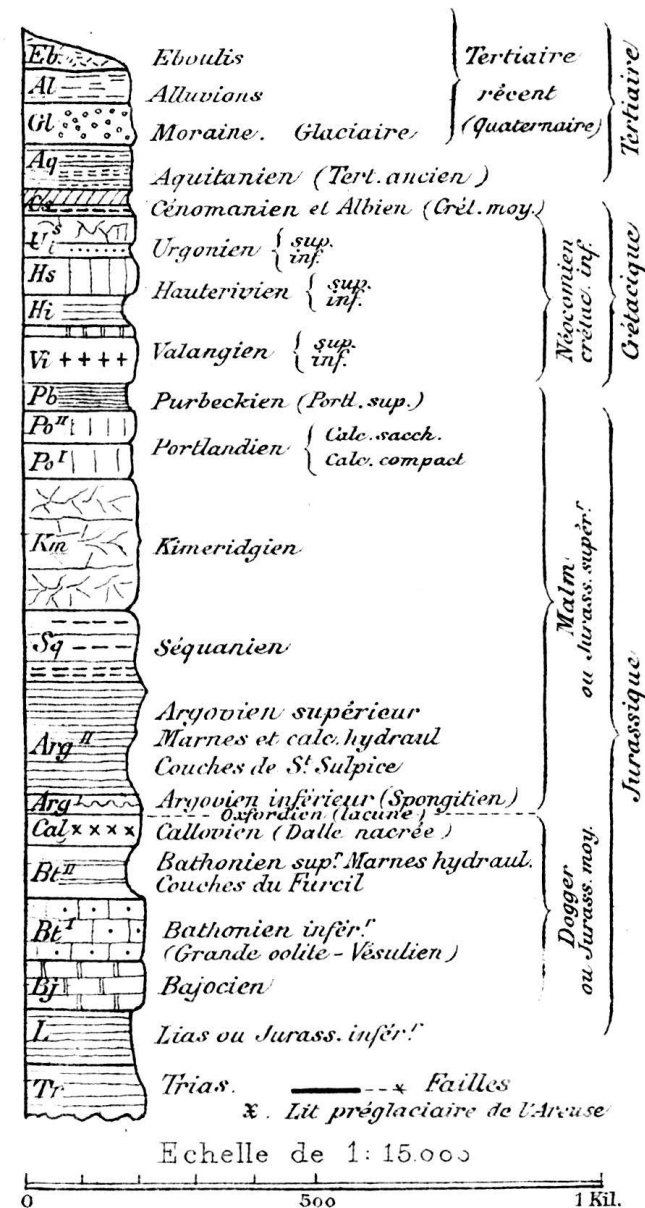 Eb Eboulis
Al Alluvions
Gl Moraine. Glaciaire
Tertiaire
récent
(quaternaire)
Tertiaire
Aq Aquitanien (Tert. ancien)
Cénomanien et Albien (Crét. moy.)
U s i Urgonien { sup. inf.
Hs Hauterivien { sup. inf.
Hi
Vi Valangien { sup. inf.
Néocomien
crétac. inf.
Crétacique
Pb Purbeckien (Portl. sup.)
Po II Portlandien { Calc. sacch.
Po I Calc. compact
Km Kimeridgien
Sq Séquanien
Malm
ou Jurass. supér.r
Arg II Argovien supérieur
Marnes et calc. hydraul
Couches de St Sulpice
Arg I Argovien inférieur (Spongitien)
Oxfordien (lacune)
Cal Callovien (Dalle nacrée)
Bt II Bathonien sup.r Marnes hydraul.
Couches du Furcil
Bt I Bathonien infér.r
(Grande oolite - Vésulien)
Bj Bajocien
Dogger
ou Jurass. moy.
Jurassique
L Lias ou Jurass. infér.r
Tr Trias. Failles
x. Lit préglaciaire de l'Areuse
Echelle de 1: 15.000
0 500 1 Kil.